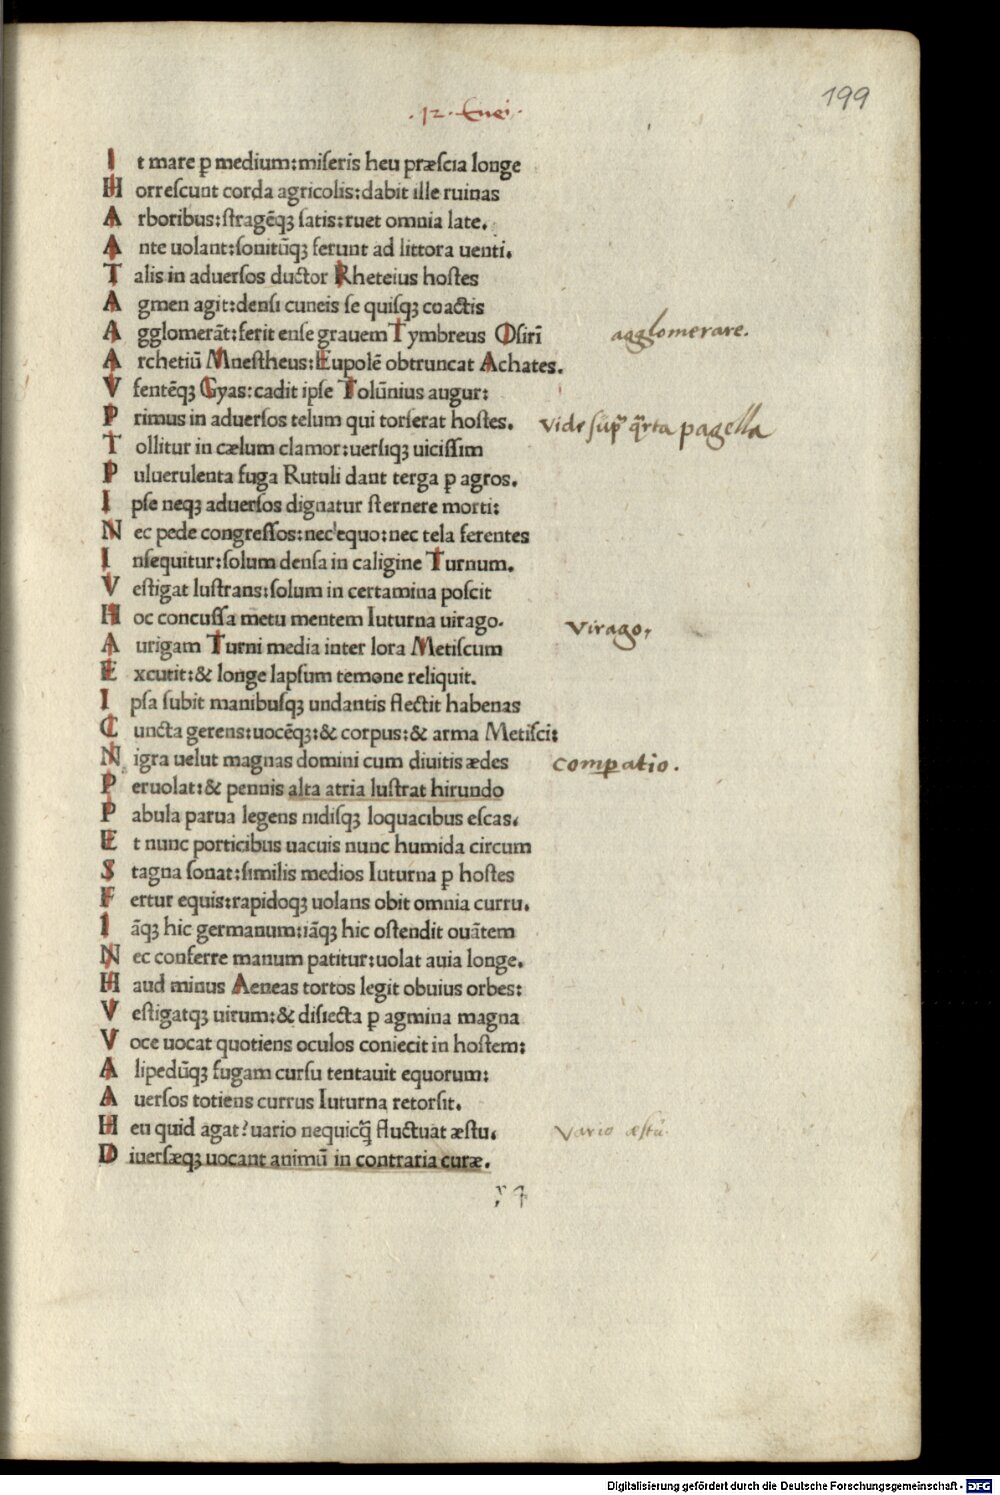 199
.12. Enei.
I t mare ꝑ medium:miſeris heu præſcia longe
H orreſcunt corda agricolis:dabit ille ruinas
A rboribus:ſtragēqꝫ ſatis:ruet omnia late.
A nte uolant:ſonitūqꝫ ferunt ad littora uenti.
T alis in aduerſos ductor Rheteius hoſtes
A gmen agit:denſi cuneis ſe quiſqꝫ coactis
A gglomerāt:ferit enſe grauem Tymbreus Oſirī
agglomerare.
A rchetiū Mneſtheus:Eupolē obtruncat Achates.
V fentēqꝫ Gyas:cadit ipſe Tolūnius augur:
P rimus in aduerſos telum qui torſerat hoſtes.
vide ſup̄ q̄rta pagella
T ollitur in cælum clamor:uerſiqꝫ uiciſſim
P uluerulenta fuga Rutuli dant terga ꝑ agros.
I pſe neqꝫ aduerſos dignatur ſternere morti:
N ec pede congreſſos:nec'equo:nec tela ferentes
I nſequitur:ſolum denſa in caligine Turnum.
V eſtigat luſtrans:ſolum in certamina poſcit
H oc concuſſa metu mentem Iuturna uirago.
virago,
A urigam Turni media inter lora Metiſcum
E xcutit:& longe lapſum temone reliquit.
I pſa ſubit manibuſqꝫ undantis flectit habenas
C uncta gerens:uocēqꝫ:& corpus:& arma Metiſci:
N igra uelut magnas domini cum diuitis ædes
comꝑatio.
P eruolat:& pennis alta atria luſtrat hirundo
P abula parua legens nidiſqꝫ loquacibus eſcas.
E t nunc porticibus uacuis nunc humida circum
S tagna ſonat:ſimilis medios Iuturna ꝑ hoſtes
F ertur equis:rapidoqꝫ uolans obit omnia curru.
I āqꝫ hic germanum:iāqꝫ hic oſtendit ouātem
N ec conferre manum patitur:uolat auia longe.
H aud minus Aeneas tortos legit obuius orbes:
V eſtigatqꝫ uirum:& diſiecta ꝑ agmina magna
V oce uocat quotiens oculos coniecit in hoſtem:
A lipedūqꝫ fugam curſu tentauit equorum:
A uerſos totiens currus Iuturna retorſit.
H eu quid agat?uario nequicq̄ fluctuat æſtu.
Vario æſtū.
D iuerſæqꝫ uocant animū in contraria curæ.
Digitalisierung gefördert durch die Deutsche Forschungsgemeinschaft - DFG